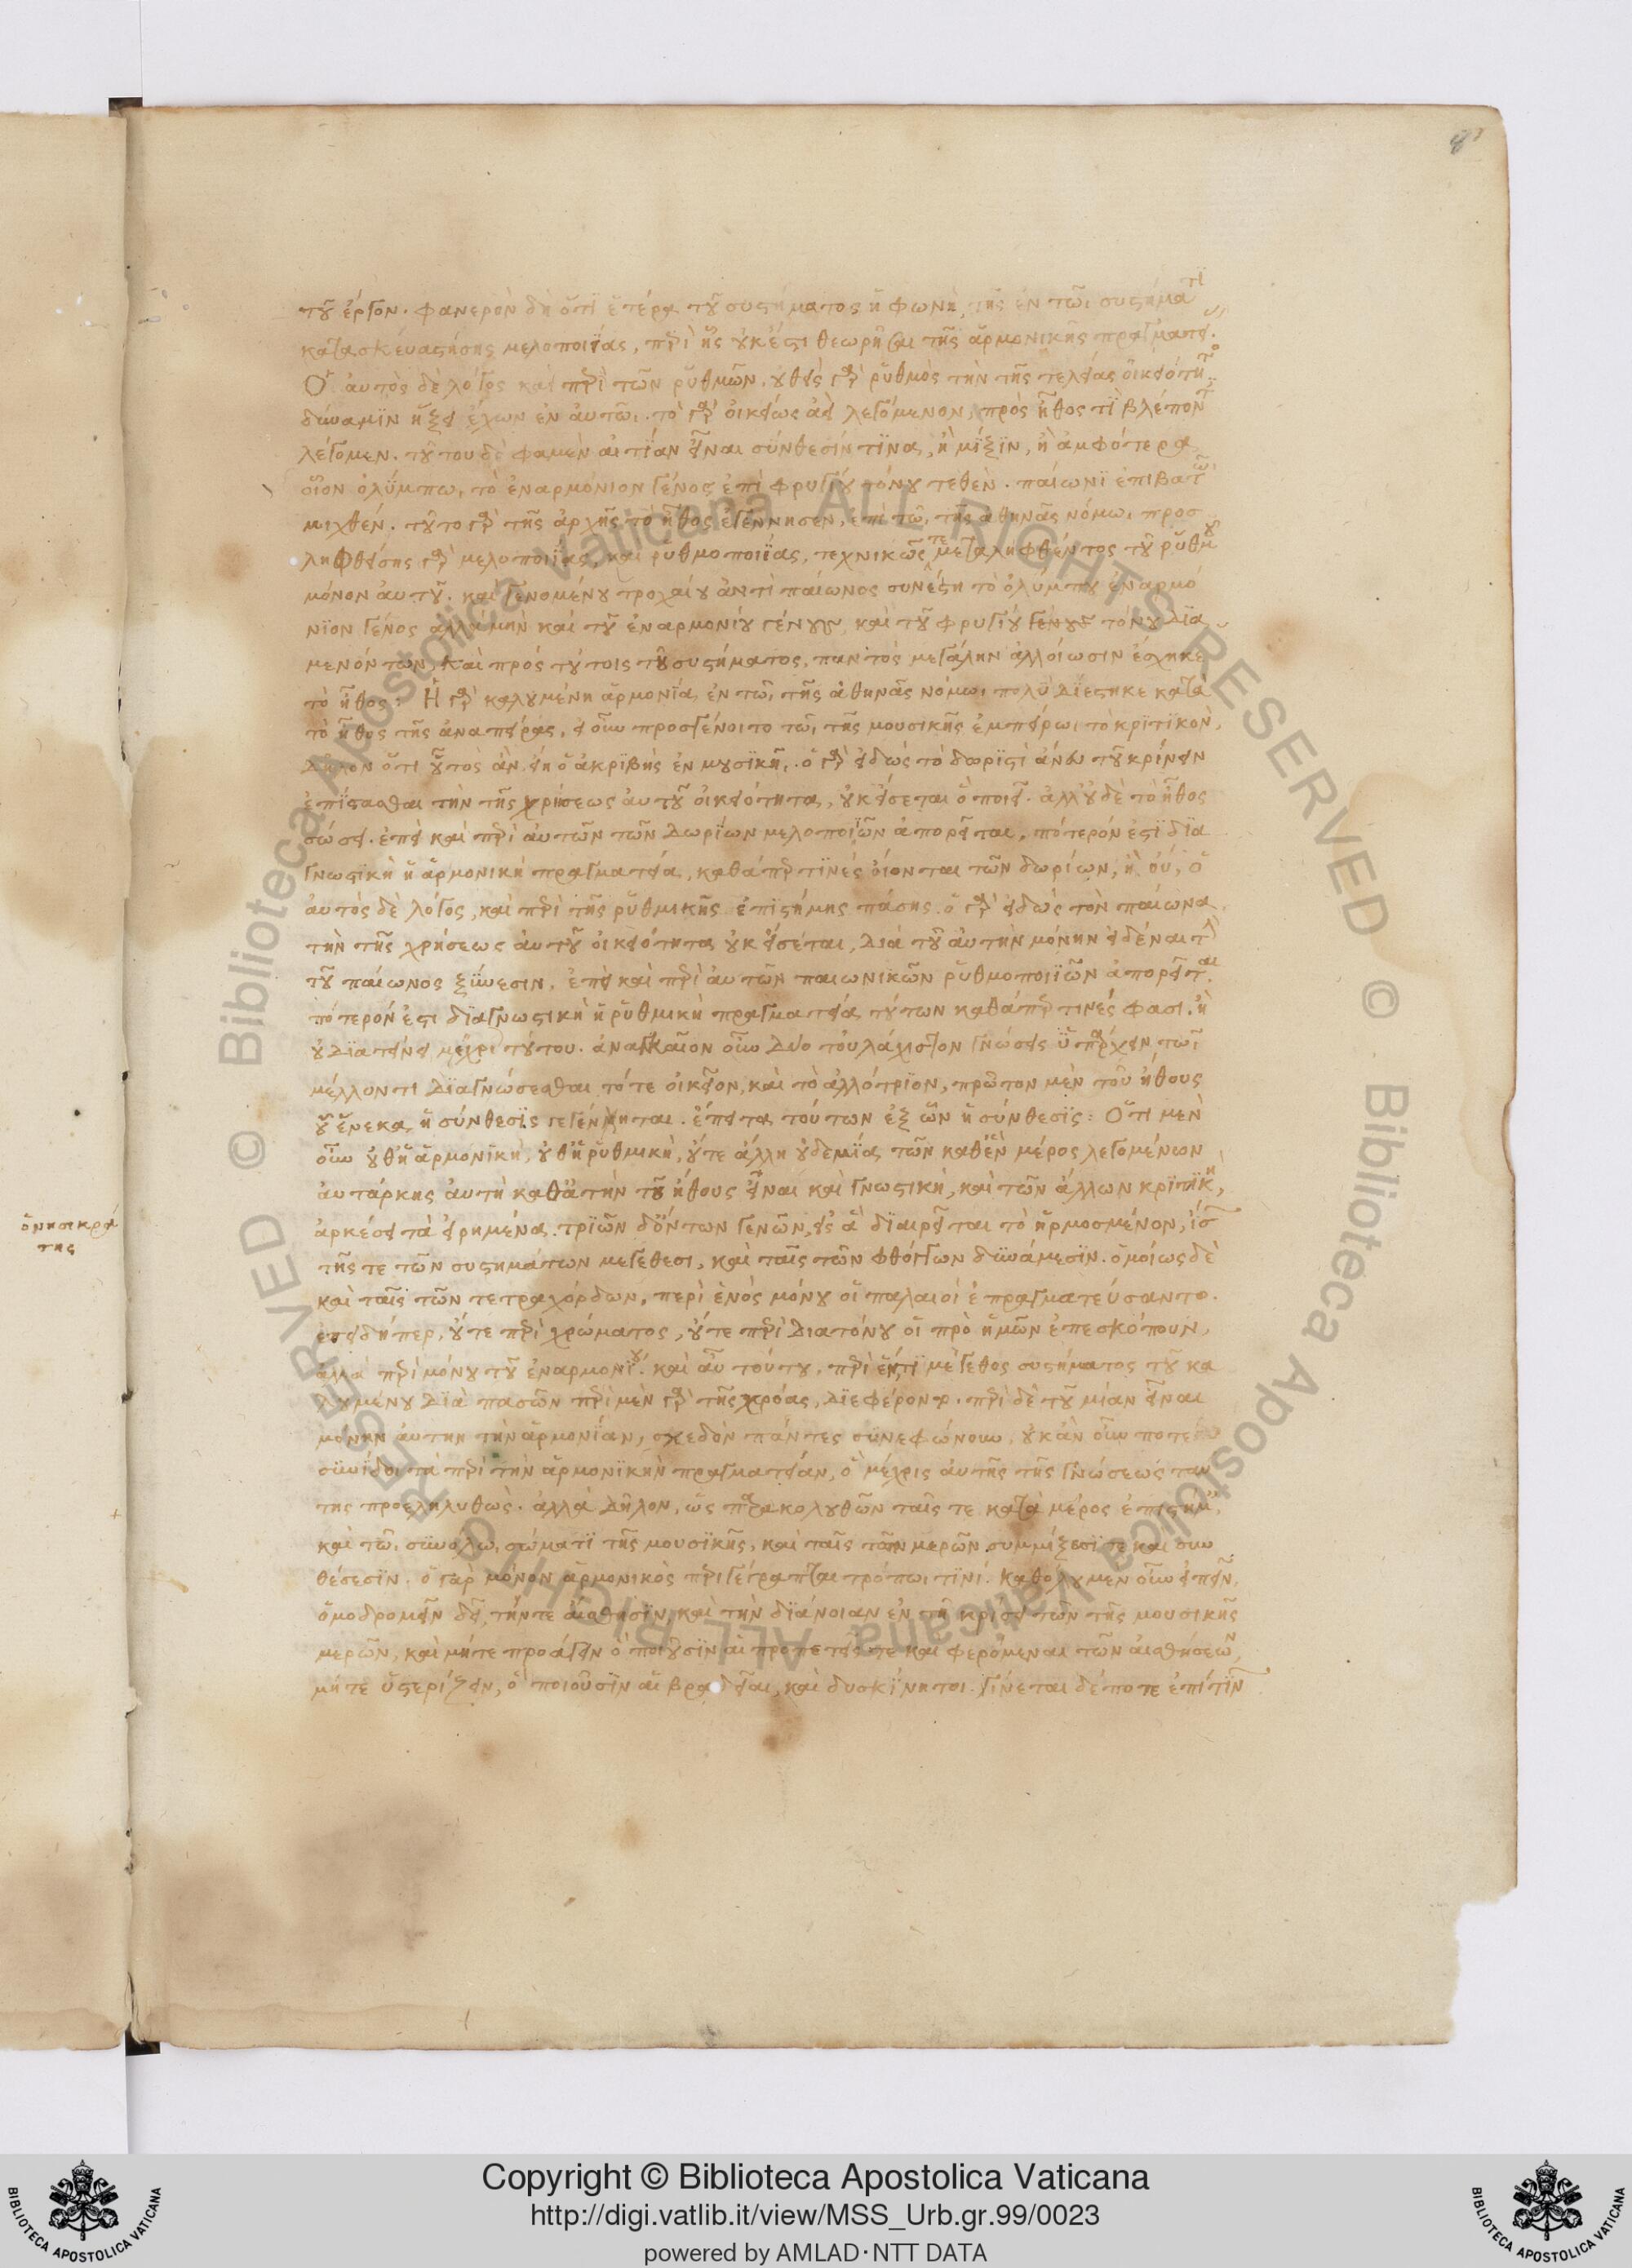 8
τοῦ ἔργον. φανερὸν δὴ ὅτι ἑτέρα τοῦ συστήματος ἡ φωνὴ, τῆς ἐν τῶι συστήματι
κατασκευασθείσης μελοποιΐας, περὶ ἧς οὐκ ἔστι θεωρῆσαι τῆς ἁρμονικῆς πραγματεί.
Ὁ αὐτὸς δὲ λόγος καὶ περὶ τῶν ῥυθμῶν. οὐθεὶς γὰρ ῥυθμὸς τὴν τῆς τελείας οἰκειότητος
δύναμϊν ἥξει ἔχων ἐν ἁυτῶι. τὸ γὰρ οἰκείως ἀεὶ λεγόμενον, πρὸς ἦθος τϊ βλέποντ
λέγομεν. τούτου δὲ φαμὲν αἰτΐαν εἶναι σύνθεσίν τϊνα, ἢ μίξϊν, ἢ ἀμφότερα
οἷον ὀλύμπω, τὸ ἐναρμόνιον γένος ἐπὶ φρυγίου τόνου τεθὲν. παίωνϊ ἐπιβατῶι
μιχθέν. τοῦτο γὰρ τῆς ἀρχῆς τὸ ἦθος ἐγέννησεν, ἐπὶ τῶ, τῆς ἀθηνᾶς νόμω, προσ
ληφθείσης γὰρ μελοποιΐας, καὶ ρυθμοποιΐας, τεχνικῶς τε μεταληφθέντος τοῦ ῥυθμοῦ
μόνον ἀυτοῦ. καὶ γενομένου τροχαίου ἀντὶ παίωνος συνέστη τὸ ὀλύμπου ἐναρμό
νϊον γένος ἀλλὰ μὴν καὶ τοῦ ἐναρμονίου γένους, καὶ τοῦ φρυγίου γένους τόνου δϊα
μενόντων, καὶ πρός τούτοις τοῦ συστήματος, παντὸς μεγάλην ἀλλοίωσιν ἔσχηκε
τὸ ἦθος: Ἡ γὰρ καλουμένη ἁρμονΐα ἐν τῶι τῆς ἀθηνᾶς νόμω, πολὺ δϊέστηκε κατὰ
τὸ ἦθος τῆς ἀναπείρας. εἰ οὖν προσγένοιτο τῶι τῆς μουσικῆς ἐμπείρωι τὸ κρϊτϊκὸν,
δῆλον ὅτι οὗτὸς ἂν εἴη ὁ ἀκρϊβὴς ἐν μουσϊκῆι. ὁ γὰρ εἰδὼς τὸ δωρϊστὶ ἄνευ τοῦ κρίνειν
ἐπίστασθαι τὴν τῆς χρήσεως ἀυτοῦ οἰκειότητα, οὐκ εἴσεται ὃ ποιεῖ. ἀλλ' οὐδὲ τὸ ἦθος
σώσει. ἐπεὶ καὶ περὶ ἀυτῶν τῶν Δωρϊων μελοποιϊῶν ἀπορεῖται, πότερόν ἐστϊ δϊα
γνωστϊκὴ ἡ ἁρμονικὴ πραγματεία, καθάπερ τϊνὲς ὄιονται τῶν δωρίων, ἢ οὔ, ὁ
ἀυτὸς δὲ λόγος, καὶ περὶ τῆς ῥυθμικῆς ἐπιστήμης πάσης. ὁ γὰρ εἰδὼς τὸν παίωνα
τὴν τῆς χρήσεως ἀυτοῦ οἰκειότητα οὐκ εἴσεται, διὰ τοῦ ἀυτὴν μόνην εἰδέναι τὴν
τοῦ παίωνος ξύνεσιν. ἐπεὶ καὶ περὶ ἀυτῶν παιωνικῶν ῥυθμοποιϊῶν ἀπορεῖται
πότερόν ἐστι δϊαγνωστικὴ ἡ ῥυθμικὴ πραγματεία τούτων καθάπερ τινές φασι. ἢ
οὐ δϊατείνει μέχρι τούτου. ἀναγκαῖον οὖν δύο τοὐλάχιστον γνώσεις ὑπάρχειν τῶι
μέλλοντι δϊαγνώσεσθαι τότε οἰκεῖον, καὶ τὸ ἀλλότρϊον, πρῶτον μὲν τοῦ ἤθους
οὗ ἕνεκα ἡ σύνθεσϊς γεγένηται. ἔπειτα τούτων ἐξ ὧν ἡ σύνθεσϊς: Ὅτι μὲν
οὖν οὔθ' ἡ ἁρμονϊκὴ, οὔθ' ἡ ῥυθμικὴ, οὔτε ἄλλη οὐδεμΐα τῶν καθ' ἓν μέρος λεγομένων
ἀυτάρκης ἀυτὴ καθ' ἁυτὴν τοῦ ἤθους εἶναι καὶ γνωστικὴ, καὶ τῶν ἄλλων κρϊτϊκὴ,
ἀρκέσει τὰ εἰρημένα. τρϊῶν δ' ὄντων γενῶν, εἰς ἃ δϊαιρεῖται τὸ ἡρμοσμένον, ἴσ
τῆς τε τῶν συστημάτων μεγέθεσι, καὶ ταῖς τῶν φθόγγων δυνάμεσϊν. ὁμοίως δὲ
καὶ ταῖς τῶν τετραχόρδων, περὶ ἑνὸς μόνου οἱ παλαιοὶ ἐπραγματεύσαντο.
ἐπειδήπερ, οὔτε περὶ χρώματος, οὔτε περὶ διατόνου οἱ πρὸ ἡμῶν ἐπεσκόπουν,
ἀλλὰ περὶ μόνου τοῦ ἐναρμονΐου. καὶ αὖ τούτου. περὶ ἕν τϊ μέγεθος συστήματος τοῦ κα
λουμένου δϊὰ πασῶν περὶ μὲν γὰρ τῆς χρόας, δϊεφέροντο. περὶ δὲ τοῦ μίαν εἶναι
μόνην ἀυτην τὴν ἁρμονΐαν, σχεδὸν πάντες συνεφώνουν. οὐκ ἂν οὖν ποτε
συνίδοι τὰ περὶ τὴν ἁρμονϊκὴν πραγματείαν, ὁ μέχρις ἀυτῆς τῆς γνώσεως ταυ
της προεληλυθὼς. ἀλλὰ δῆλον, ὡς παρακολουθῶν ταῖς τε κατὰ μέρος ἐπιστήμ
καὶ τῶ, συνόλω, σώματϊ τῆς μουσϊκῆς, καὶ ταῖς τῶν μερῶν συμμίξεσϊ τε καὶ συν
θέσεσϊν. ὁ γὰρ μόνον ἁρμονικὸς περιγέγραπται τρόπωι τϊνί. καθόλου μεν οὖν εἰπεῖν,
ὁμοδρομεῖν δεῖ, τήν τε αἴσθησϊν, καὶ τὴν δϊάνοιαν ἐν τῆ κρίσει τῶν τῆς μουσικῆς
μερῶν, καὶ μήτε προάγειν ὃ ποιοῦσϊν αἱ προπετεῖς τε καὶ φερόμεναι τῶν αἰσθήσεων,
μήτε ὑστερίζειν, ὃ ποιοῦσϊν αἱ βραδεῖαι, καὶ δυσκίνητοι. γίνεται δέ ποτε ἐπί τϊν
ὀνησικρά
της
Copyright © Biblioteca Apostolica Vaticana
http://digi.vatlib.it/view/MSS_Urb.gr.99/0023
powered by AMLAD·NTT DATA
BIBLIOTECA APOSTOLICA VATICANA
BIBLIOTECA APOSTOLICA VATICANA
© Biblioteca Apostolica Vaticana ALL RIGHTS RESERVED
© Biblioteca Apostolica Vaticana ALL RIGHTS RESERVED